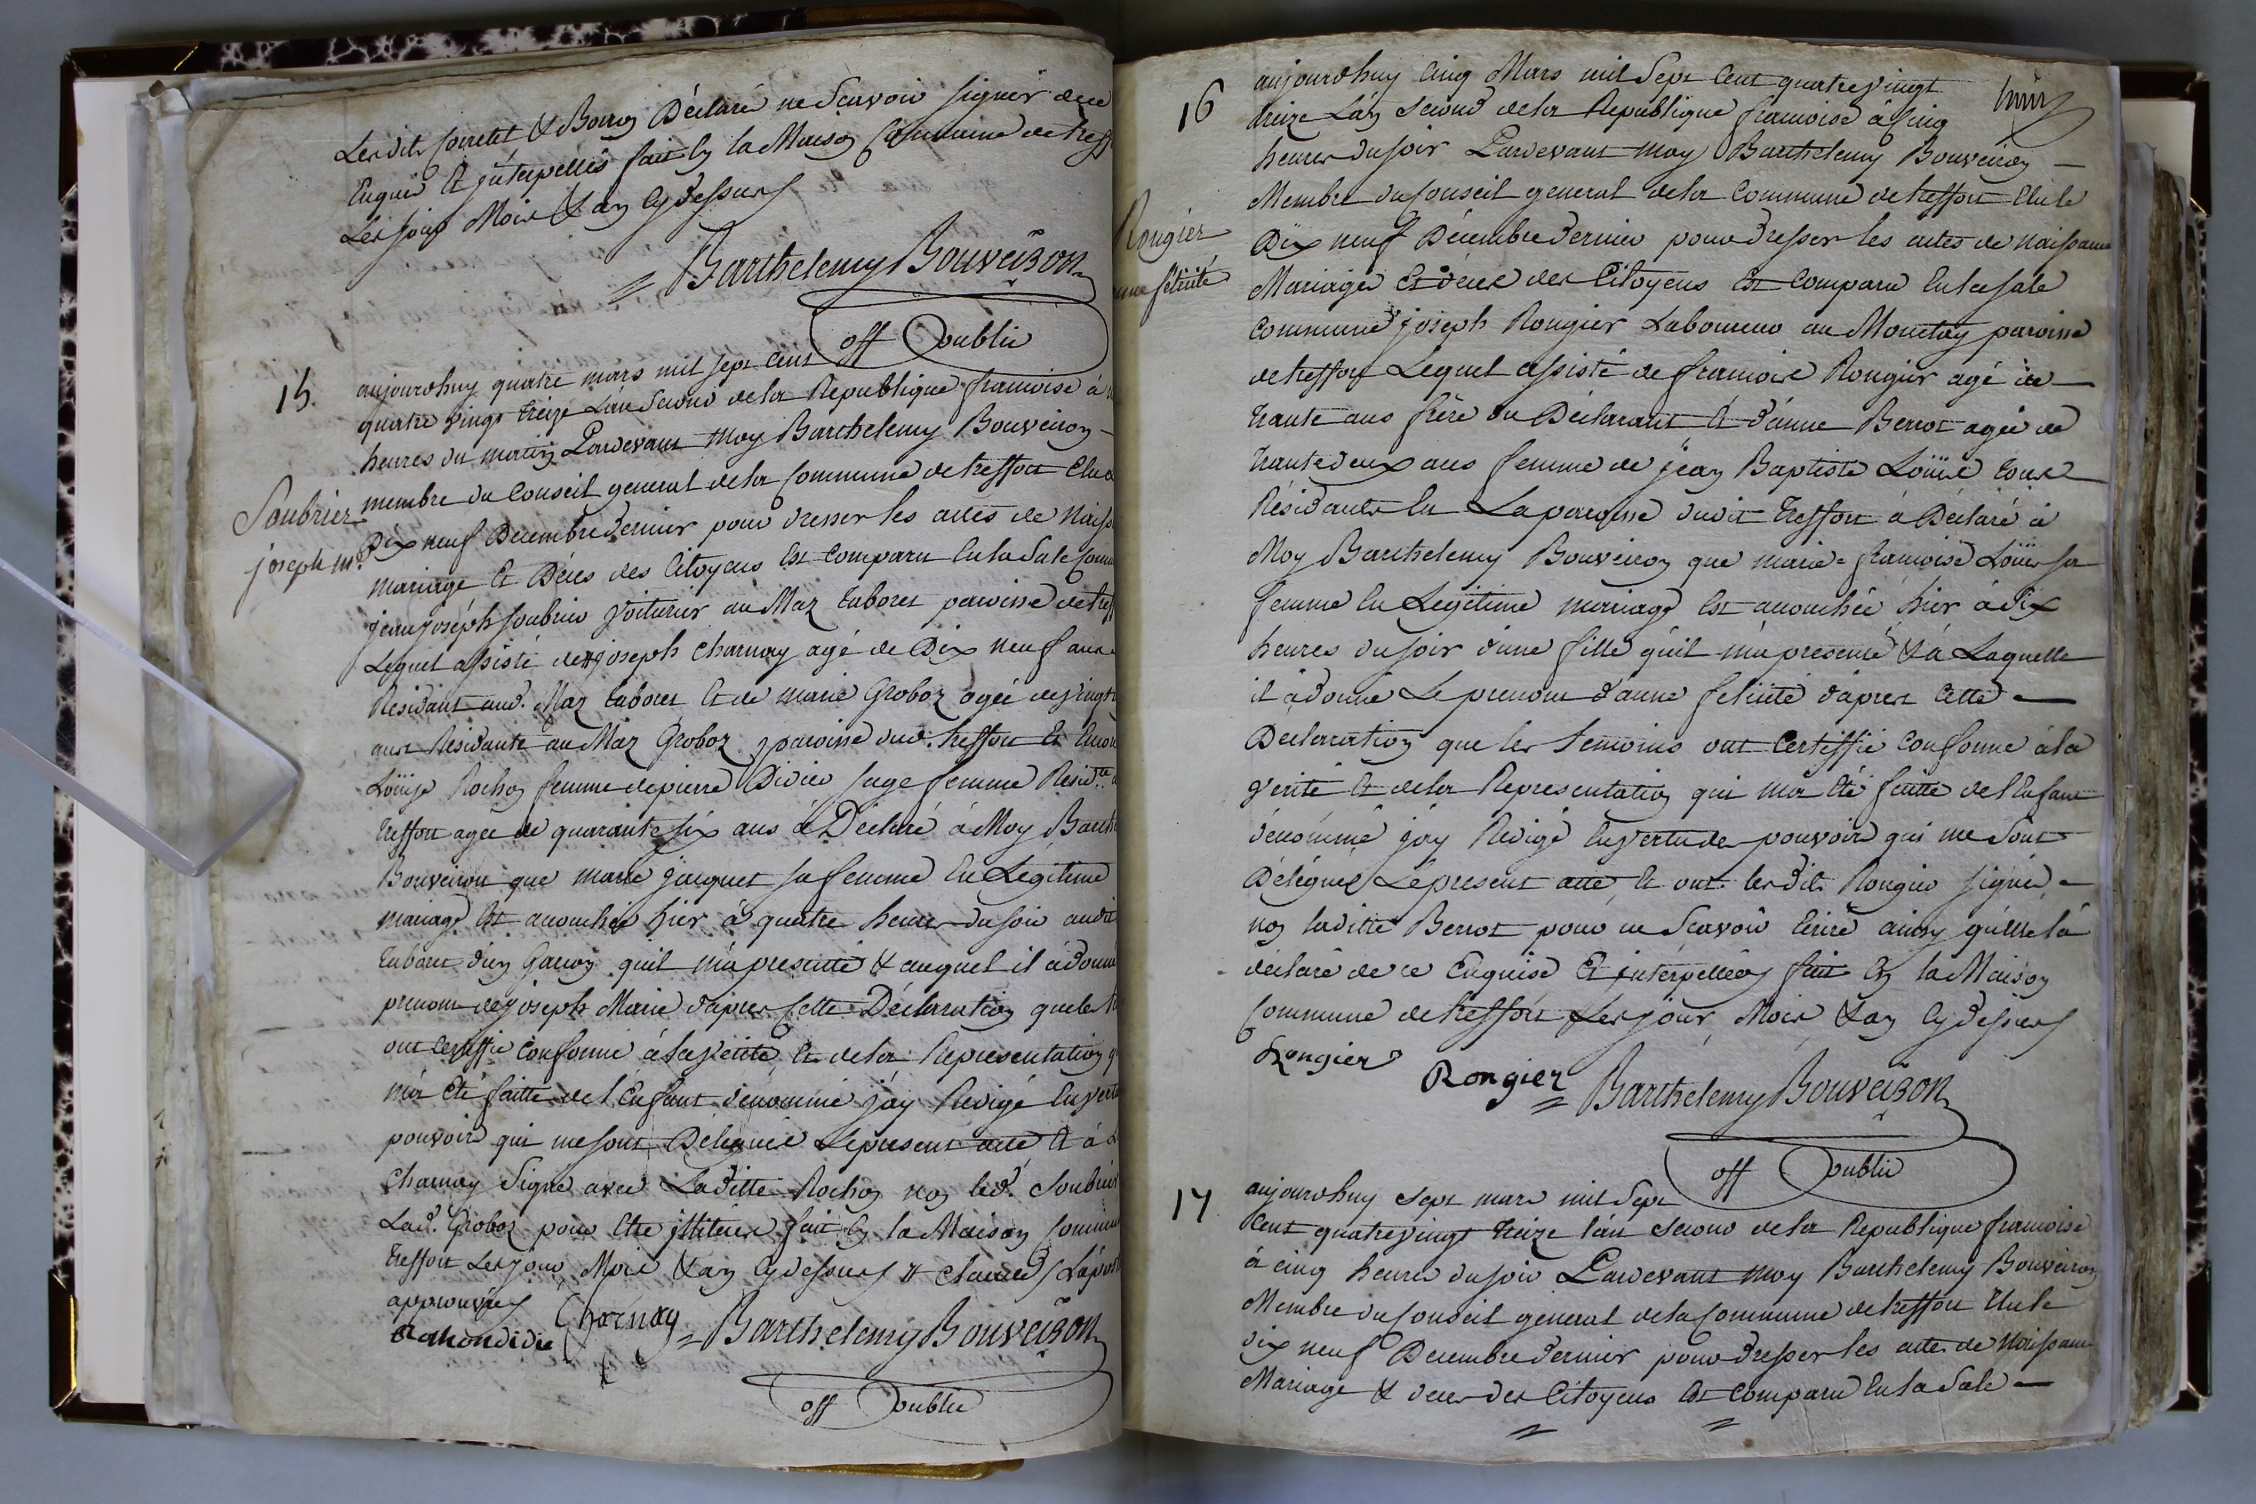 Lesdits Convert & Borron Déclaré ne Scavoir signer dece
Enquis Et jnterpellés fait En la Maison Commune de treff
Les jour Mois & an Cydessus
Barthelemy Bouveiron
off Public
15.
aujourdhuy quatre mars mil sept Cent
quatre vingt treize L'an Second dela Republique francoise à
heures du matin Pardevant Moy Barthelemy Bouveiron
Soubrier
joseph m.
membre du Conseil general dela Commune de treffort Elu
Dix neuf Decembre dernier pour dresser les actes de Naiss
Mariage Et Déces des Citoyens Est Comparu En la Sale Comm
jean joséph Soubrier Voiturier au Maz Taboret paroisse de treff
Lequel assisté de joseph Charnay agé de Dix neuf ans
Résidant aud. Maz taboret Et de marie Groboz agée de vingt
ans Résidante au Maz Groboz paroisse dud. treffort Et Encor
Loüise Rochon femme de pierre Didier Sage femme Resid.te
treffort agée de quarante six ans à Déclaré à Moy Barth
Bouveiron que marie jacquet sa femme En Légitime
mariage Est acouchée hier à quatre heures du soir audit
taboret d'un Garcon quil m'à presenté & auquel il à donné
prenom de joseph Marie d'apres Cette Déclaration que les
ont Certiffié Conforme à la Verité Et dela Representation q
m'à Eté faitte de l'Enfant dénommé j'ay Redigé En vert
pouvoir qui me sont Delegués Le present acte Et à
Charnay Signé avec Laditte Rochon non led. Soubrier
Lad. Groboz pour Etre jlliterés fait En la Maison Commun
treffort Les jour Mois & an Cydessus # claude / L'apost
approuvée
Charnay
Barthelemy Bouveiron
off Public
16
aujourdhuy Cinq Mars mil Sept Cent quatre vingt
treize L'an Second dela Republique francoise à Cinq
heures du soir Pardevant Moy Barthelemy Bouveiron
Membre du Conseil general dela Commune de treffort Elu le
Rougier
anne félicité
Dix neuf Décembre dernier pour dresser les actes de naissance
Mariage Et déces des Citoyens Est Comparu En la Sale
Commune joseph Rougier Laboureur au Montay paroisse
de treffort Lequel assisté de francois Rougier agé de
trante ans frère du Déclarant Et d'anne Berrot agée de
trante deux ans femme de jean Baptiste Loüis tous
Résidants En La paroisse dudit treffort à Déclaré à
Moy Barthelemy Bouveiron que marie francoise Loüis sa
femme En Legitime mariage Est acouchée hier à dix
heures du soir d'une fille qu'il m'à presenté & à Laquelle
il à donné Le prenom d'anne felicité d'après Cette
Declaration que les temoins ont Certiffié Conforme à la
Verité Et dela Representation qui m'à été faitte de l'Enfant
dénommé j'ay Redigé En vertu des pouvoirs qui me Sont
Délégués Le present acte Et ont lesdits Rougier signé
non laditte Berrot pour ne Scavoir Ecrire ainsy qu'elle l'à
déclaré de ce Enquise Et jnterpellée fait En la Maison
Commune de treffort Les jour, Mois & an Cydessus
Rougier
Rongier
Barthelemy Bouveiron
off Public
17
aujourdhuy Sept mars mil Sept
Cent quatre vingt treize l'an Second dela Republique francoise
à cinq heures du soir Pardevant Moy Barthelemy Bouveiron
Membre du Conseil general dela Commune de treffort Elu le
dix neuf Decembre dernier pour dresser les actes de Naissance
Mariage & deces des Citoyens Est Comparu En la Sale